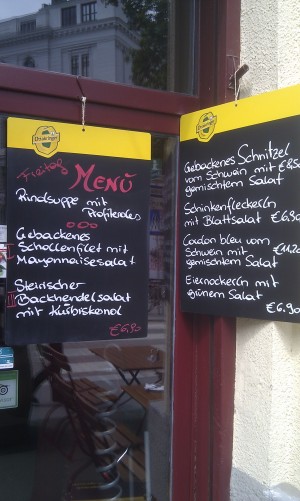 Ottakringer
Freitag
MENÜ
Rindsuppe mit
Profiteroles
ooo
Gebackenes
I Schollenfilet mit
Mayonnaisesalat
Steirischer
II Backhendelsalat
mit Kübiskenöl
€6,90
Ottakringer
Gebackenes Schnitzel
vom Schwein mit €8,50
gemischtem Salat
Schinkenfleckerln
mit Blattsalat €6,90
Cordon bleu vom
Schwein mit €11,20
gemischtem Salat
Eiernockerln mit
grünem Salat
€6.90